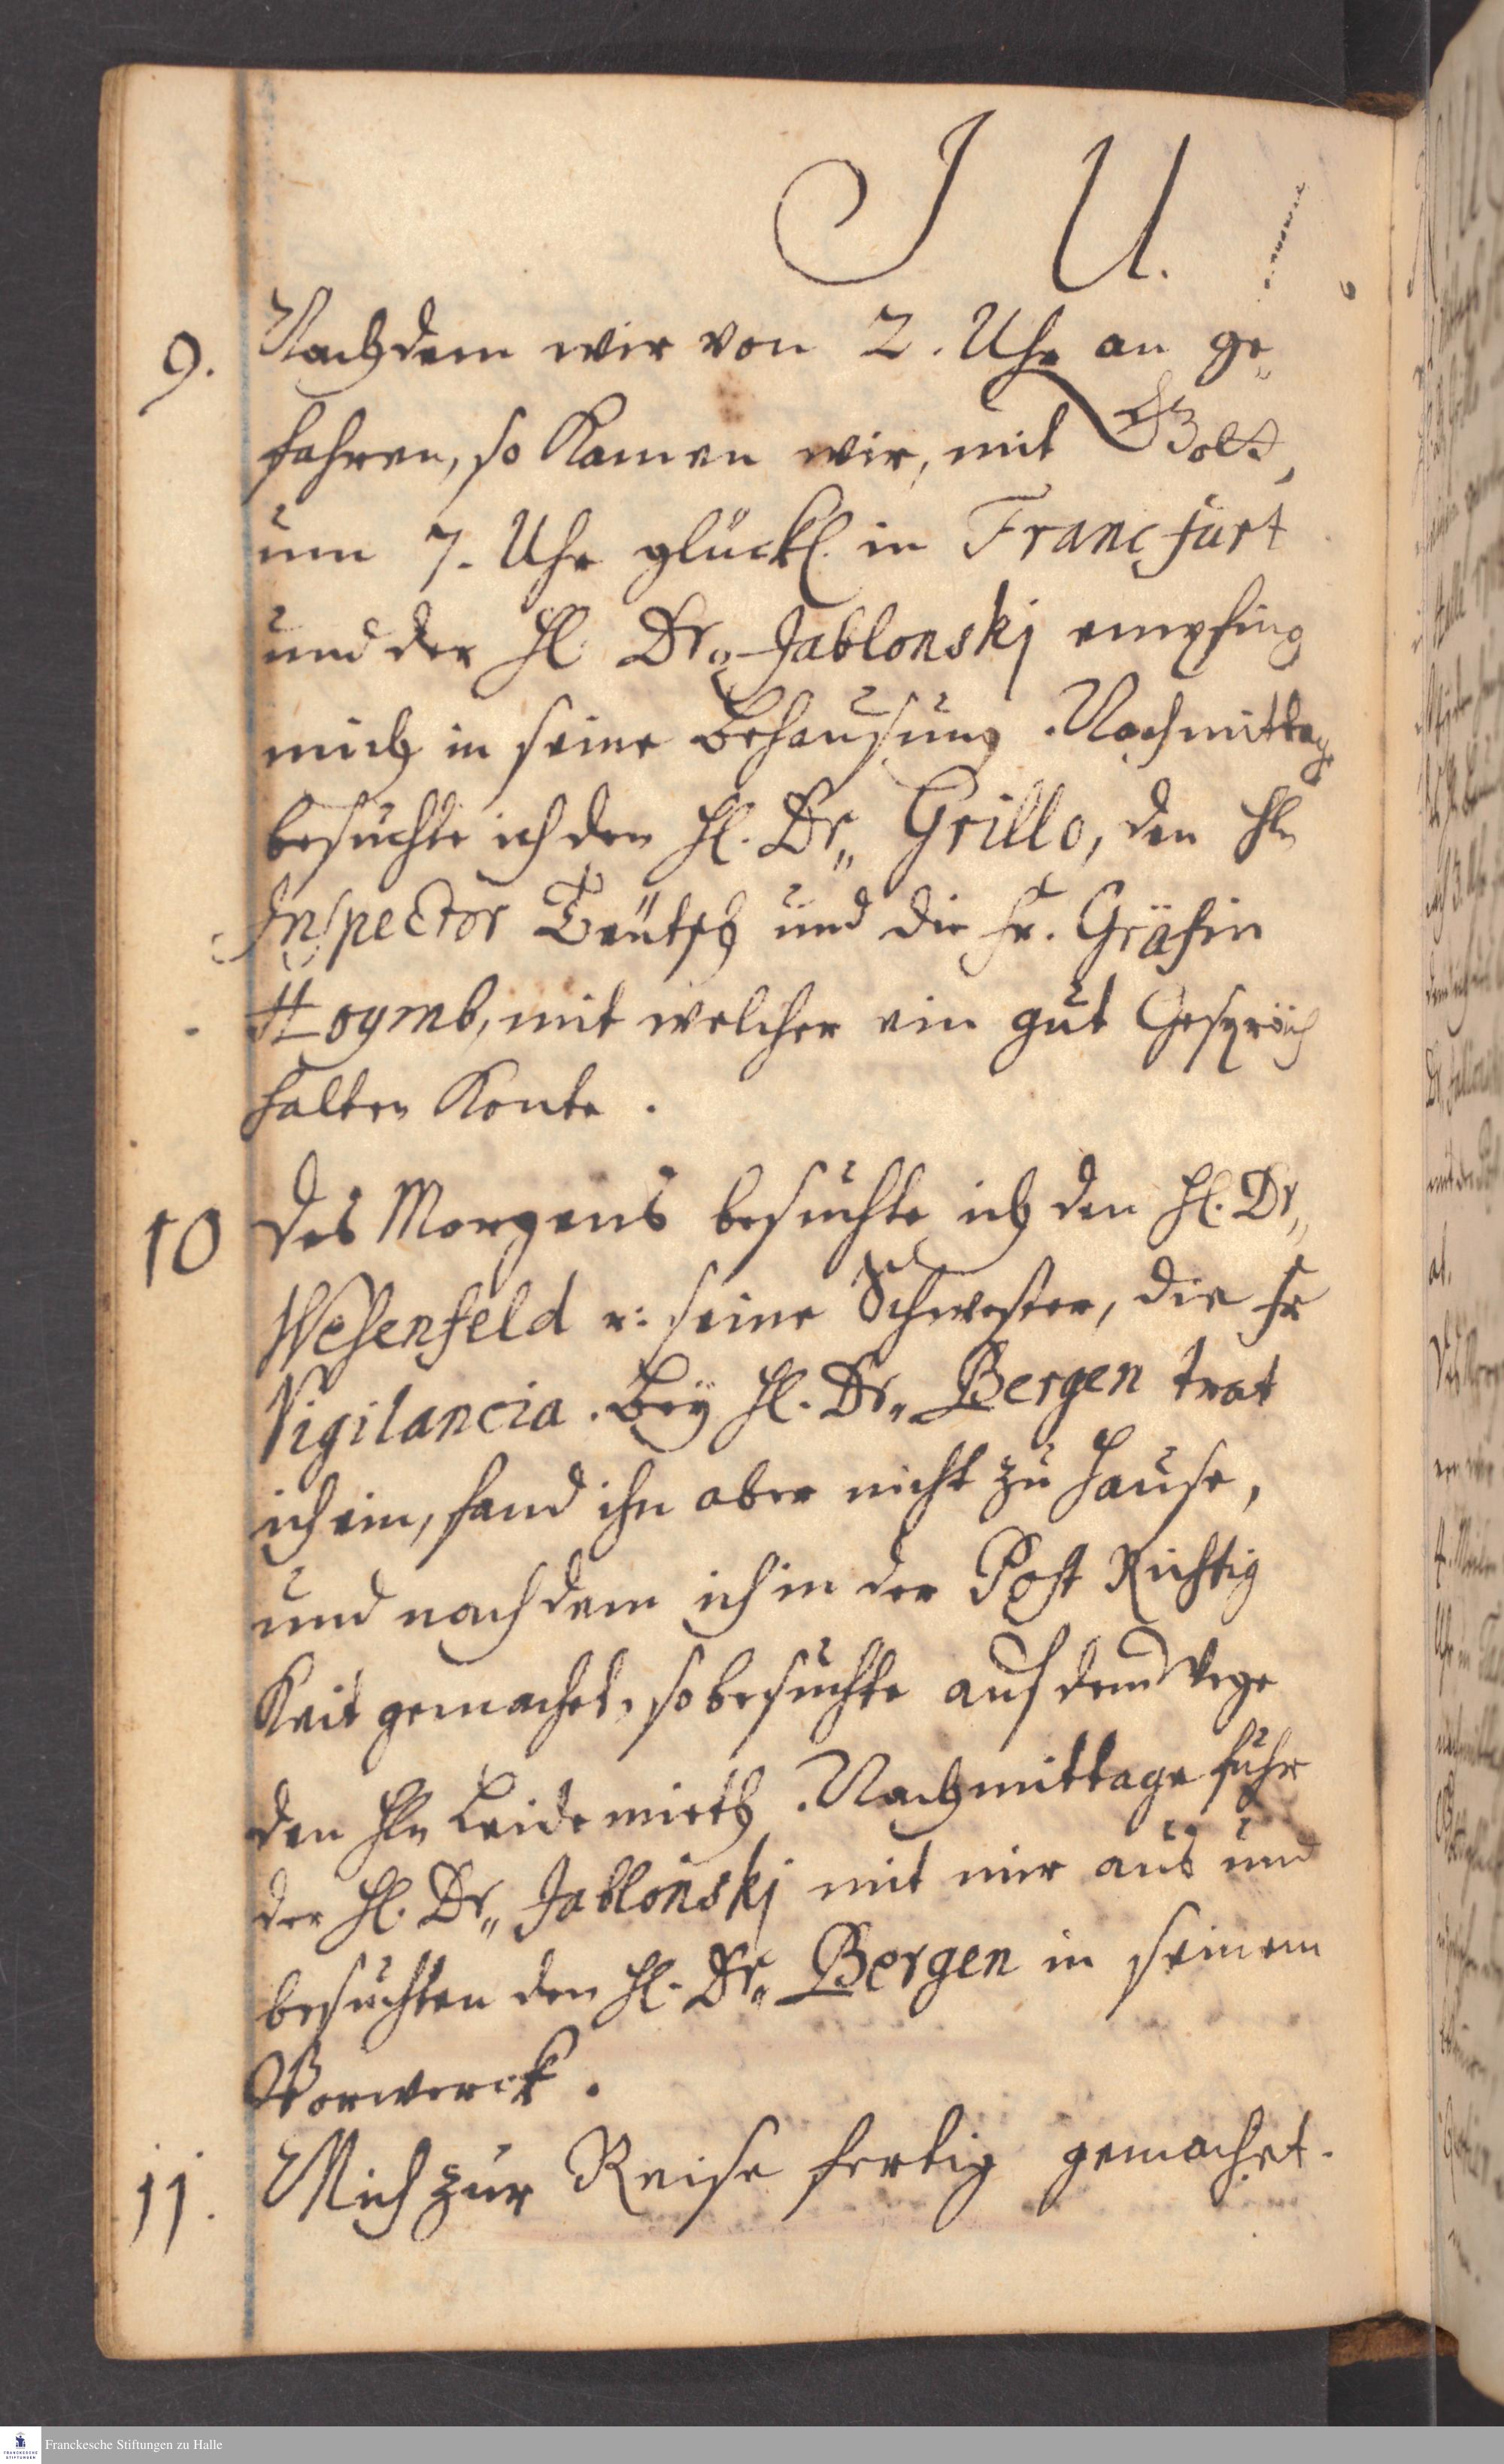 J U.
9. Nachdem wir von 2. Uhr an ge„
fahren, so kamen wir, mit Gott,
um 7. Uhr glückl. in Francfurt
und der Hl. Dr„ Jablonskj empfing
mich in seine Behausung. Nachmittage
besuchte ich den Hl. Dr„ Grillo, den Hln
Inspector Teütsch und die Fr. Gräfin
Hoymb, mit welcher ein gut Gespräch
halten konte.
10 Des Morgens besuchte ich den Hl. Dr„
Wesenfeld u: seine Schwester, die Fr
Vigilancia. Bey Hl. Dr„ Bergen trat
ich ein, fand ihn aber nicht zu Hause,
und nachdem ich in der Post Richtig
keit gemachet, so besuchte auf dem Wege
den Hln Leidemith. Nachmittage fuhr
der Hl. Dr„ Jablonskj mit mir aus und
besuchten den Hl. Dr„ Bergen in seinem
Vorwerck.
11. Mich zur Reise fertig gemachet.
Franckesche Stiftungen zu Halle